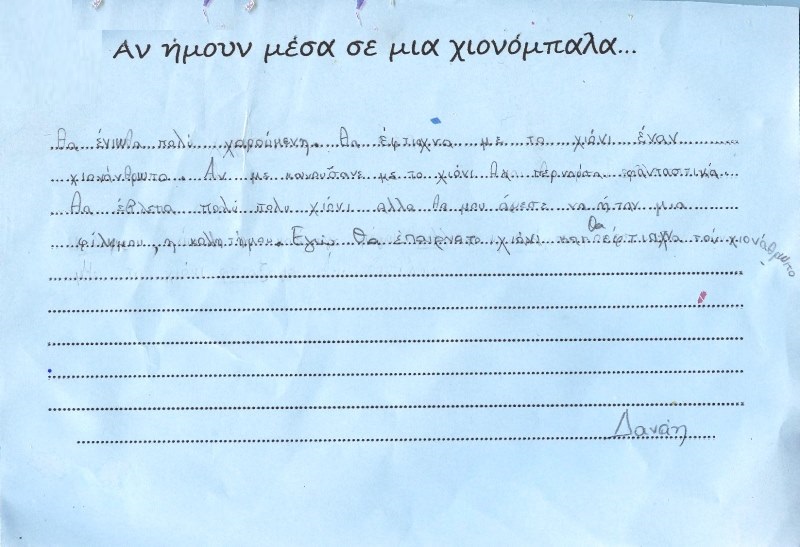 Αν ήμουν μέσα σε μια χιονόμπαλα...
θα ένιωθα πολύ χαρούμενη. θα έφτιχνα με το χιόνι έναν
χιονάνθρωπο. Αν με κουνούσανε με το χιόνι θα περνούσα φανταστικά.
θα έβλεπα πολύ πολυ χιόνι αλλα θα μου άρεσε να ήταν μια
φίλημου, η καλητήμου. Εγώ θα έπαιρνα το χιόνι και θα έφτιαχνα τον χιονάθρωπο
Δανάη